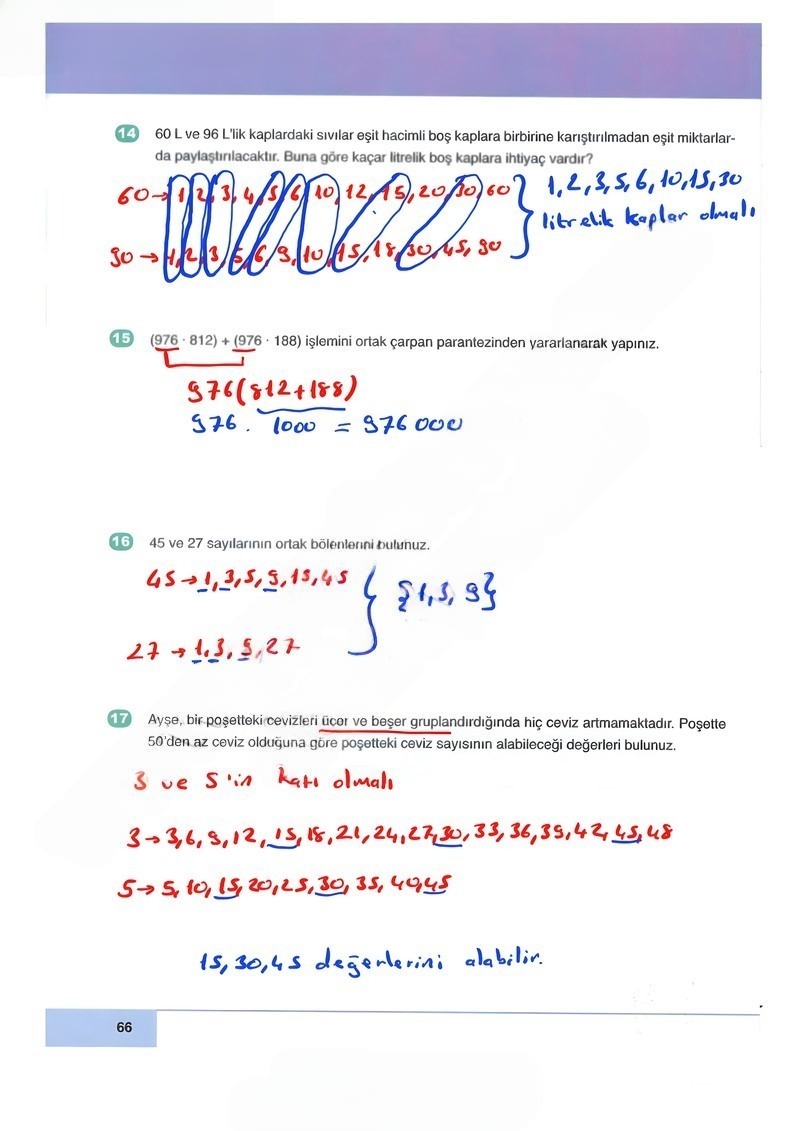 14 60 L ve 96 L'lik kaplardaki sıvılar eşit hacimli boş kaplara birbirine karıştırılmadan eşit miktarlar-
da paylaştırılacaktır. Buna göre kaçar litrelik boş kaplara ihtiyaç vardır?
60→1,2,3,4,5,6,10,12,15,20,30,60
1,2,3,5,6,10,15,30
litrelik kaplar olmalı
90→1,2,3,5,6,9,10,15,18,30,45,90
15 (976 · 812) + (976 · 188) işlemini ortak çarpan parantezinden yararlanarak yapınız.
976(812+188)
976 . 1000 = 976 000
16 45 ve 27 sayılarının ortak bölenlerini bulunuz.
45→1,3,5,9,15,45
{1,3,9}
27→1,3,9,27
17 Ayşe, bir poşetteki cevizleri üçer ve beşer gruplandırdığında hiç ceviz artmamaktadır. Poşette
50'den az ceviz olduğuna göre poşetteki ceviz sayısının alabileceği değerleri bulunuz.
3 ve 5'in katı olmalı
3→3,6,9,12,15,18,21,24,27,30,33,36,39,42,45,48
5→5,10,15,20,25,30,35,40,45
15,30,45 değerlerini alabilir.
66